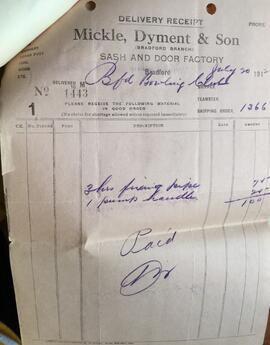 DELIVERY RECEIPT
PHONE
Mickle, Dyment & Son
(BRADFORD BRANCH)
SASH AND DOOR FACTORY
Bradford July 20 191
DELIVERED TO M Bfd Bowling
No 1443
TEAMSTER
1 PLEASE RECEIVE THE FOLLOWING MATERIAL IN GOOD ORDER SHIPPING ORDER 1266
(No claims for shortage allowed unless reported immediately)
CK. No. Pieces Feet DESCRIPTION Rate Amount
3 hrs fixing pipe 75
1 pump handle 25
100
Paid